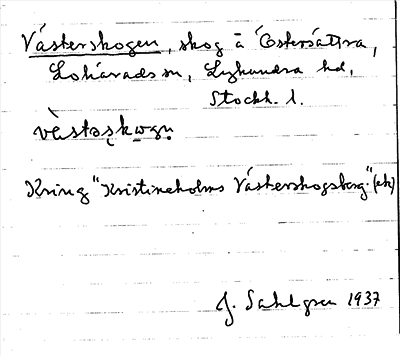 Västerskogen, skog å Östersättra,
Lohärads sn, Lyhundra hd,
Stockh. l.
vä̀stəskωgn̥
Kring "Kristineholms Västerskogsberg." (ek)
J. Sahlgren 1937